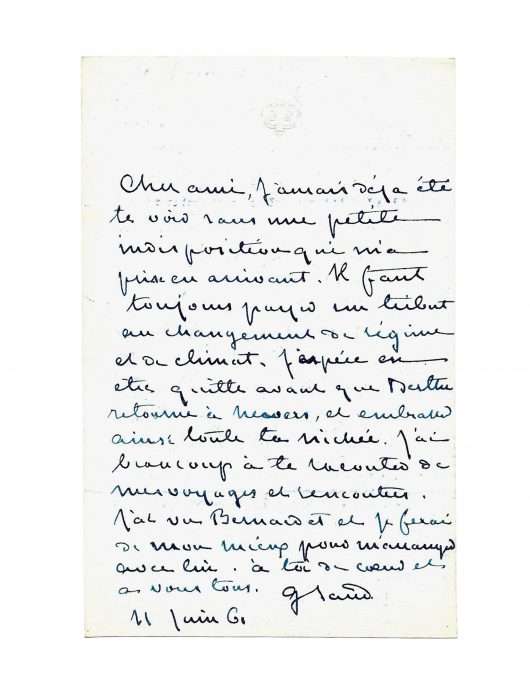 Cher ami, j'aurais déjà été
te voir sans une petite
indisposition qui m'a
prise en arrivant. Il faut
toujours payer un tribut
au changement de régime
et de climat. J'espère en
être quitte avant que Berthe
retourne à Nevers, et embrasser
ainsi toute ta nichée. J'ai
beaucoup à te raconter de
mes voyages et rencontres.
J'ai vu Bernard et je ferai
de mon mieux pour m'arranger
avec lui. à toi de cœur et
à vous tous.
G Sand
11 juin 61